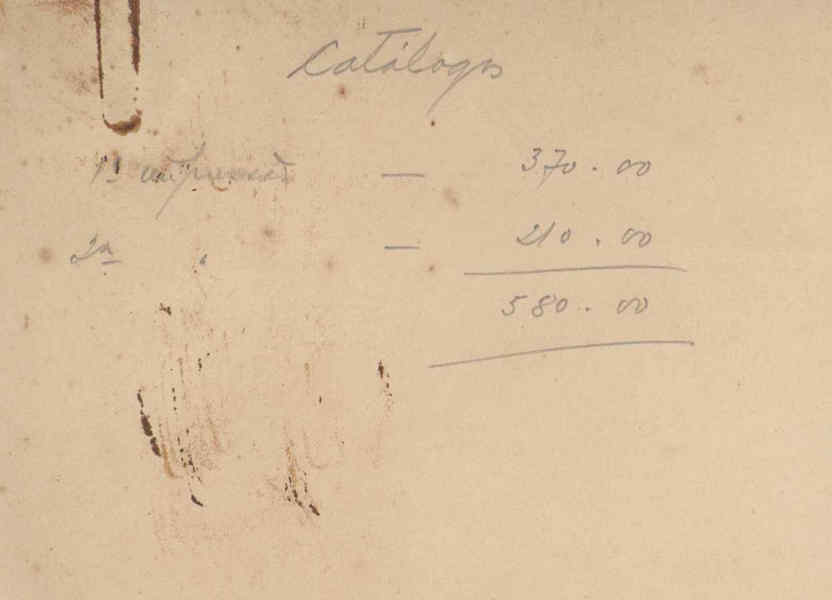 Catálogos
1ª — 370.00
2ª " — 210.00
580.00